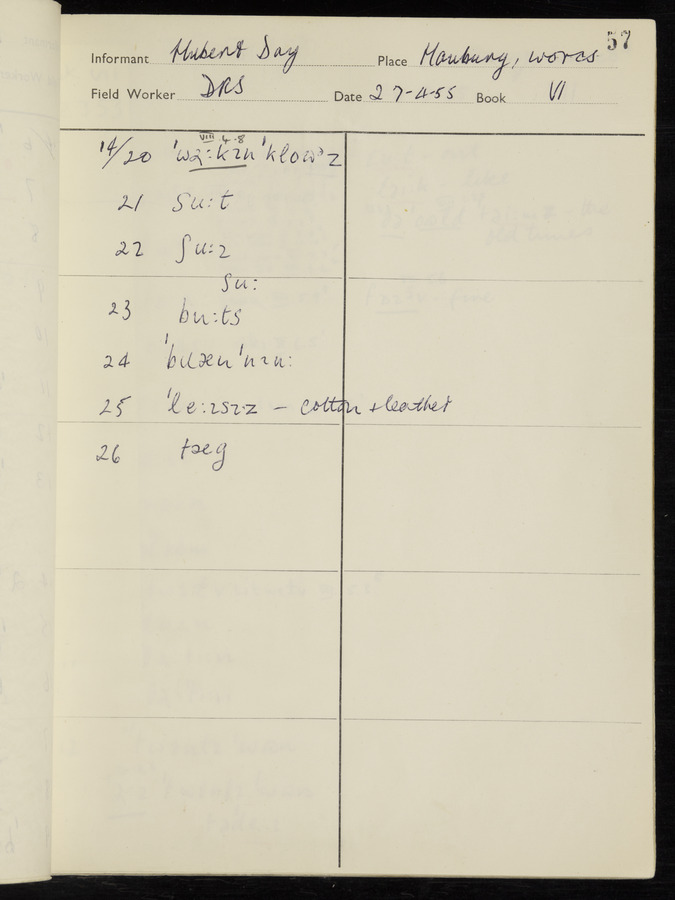 57
Informant Hubert Day Place Hanbury, Worcs
Field Worker DRS Date 27-4-55 Book VI
VIII 4-8
14/20 ˈwəːkɪn ˈklowᵊz
21 suːt
22 ʃuːz
ʃuː
23 buːts
24
25 ˈleːɪsɪz – cotton + leather
26 tæg